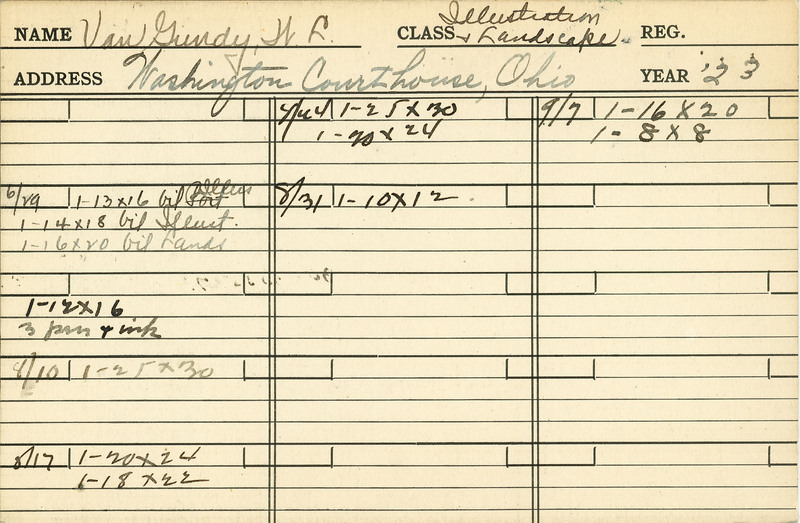 Illustration
NAME Van Gundy, W. L. CLASS & Landscape. REG.
ADDRESS Washington Courthouse, Ohio YEAR '23
6/29 1-13x16 oil
1-14x18 oil Illust.
1-16x20 oil Lands
1-12x16
3 pen & ink
8/10 1-25x30
8/17 1-20x24
1-18x22
1-25x30
1-20x24
8/31 1-10x12
9/7 1-16x20
1-8x8